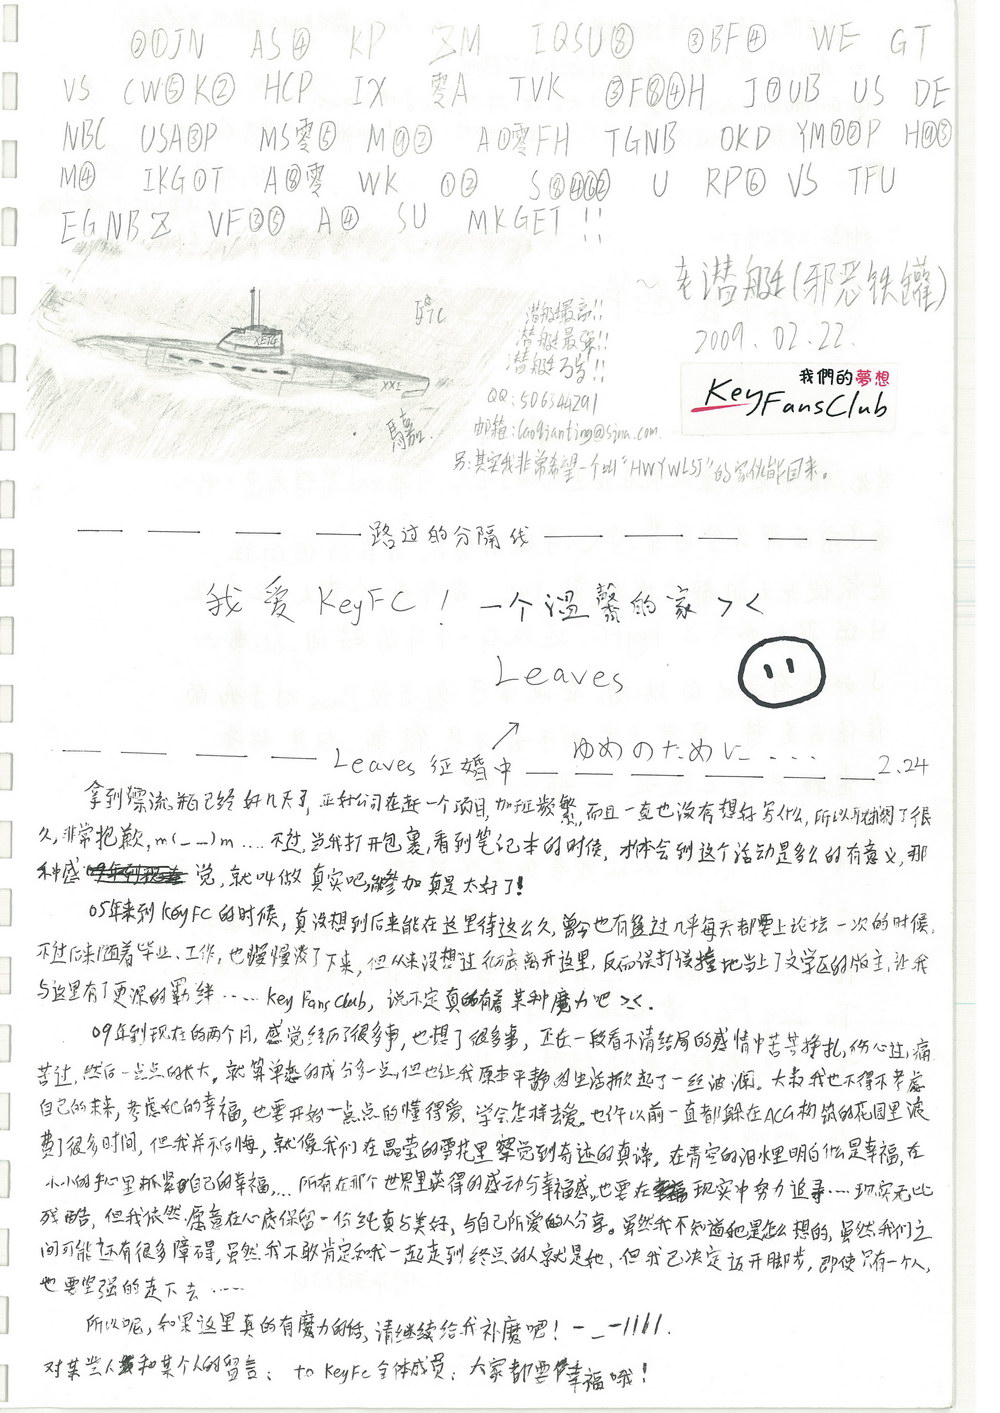 ②①JN AS④ KP ZM IQSU⑧ ③BF④ WE GT
VS CW⑤K② HCP IX 零A TVK ③F⑧④H J①UB US DE
NBC USA③P MS零⑤ M⑨② A①零FH TGNB OKD YM⑦②P H⑨③
M④ IKG①T A⑧零 WK ①② S⑧④⑥② U RP⑥ VS TFU
EGNBZ VF③⑤ A④ SU MKGET !!
~老潜艇(邪恶铁罐)
2009.02.22.
潜艇最高!!
潜艇最强!!
潜艇万岁!!
XXI
QQ:506344291
邮箱:laoqianting@sina.com.
另:其实我非常希望一个叫"HWYWLSJ"的家伙能回来。
我們的夢想
KeyFansClub
路过的分隔线
我爱KeyFC!一个温馨的家><
Leaves
Leaves征婚中
ゆめのために....
2.24
拿到漂流瓶已经好几天了,正好公司在赶一个项目,加班频繁,而且一直也没有想好写什么,所以耽搁了很
久,非常抱歉,m(_ _)m....不过,当我打开包裹,看到笔记本的时候,才体会到这个活动是多么的有意义,那
种感觉,就叫做真实吧,能参加真是太好了!
05年来到KeyFC的时候,真没想到后来能在这里待这么久,曾今也有过几乎每天都要上论坛一次的时候,
不过后来随着毕业、工作,也慢慢淡了下来,但从来没想过彻底离开这里,反而误打误撞地当上了文学区的版主,让我
与这里有了更深的羁绊......Key Fans Club,说不定真的有着某种魔力吧><.
09年到现在的两个月,感觉经历了很多事,也想了很多事,正在一段看不清结局的感情中苦苦挣扎,伤心过,痛
苦过,然后一点点的长大。就算单恋的成分多一点,但也让我原本平静的生活掀起了一丝波澜。大和我也不得不考虑
自己的未来,考虑她的幸福,也要开始一点点的懂得爱、学会怎样去爱。也许以前一直都躲在ACG构筑的花园里浪
费了很多时间,但我并不后悔,就像我们在晶莹的雪花里察觉到奇迹的真谛,在青空的泪水里明白什么是幸福,在
小小的手心里抓紧自己的幸福....所有在那个世界里获得的感动与幸福感,也要在现实中努力追寻....现实无比
残酷,但我依然愿意在心底保留一份纯真与美好,与自己所爱的人分享。虽然我不知道她是怎么想的,虽然我们之
间可能还有很多障碍,虽然我不敢肯定和我一起走到终点的人就是她,但我已决定迈开脚步,即使只有一个人,
也要坚强的走下去......
所以呢,如果这里真的有魔力的话,请继续给我补魔吧!-_-||||.
对某些人和某个人的留言: to KeyFC全体成员:大家都要幸福哦!